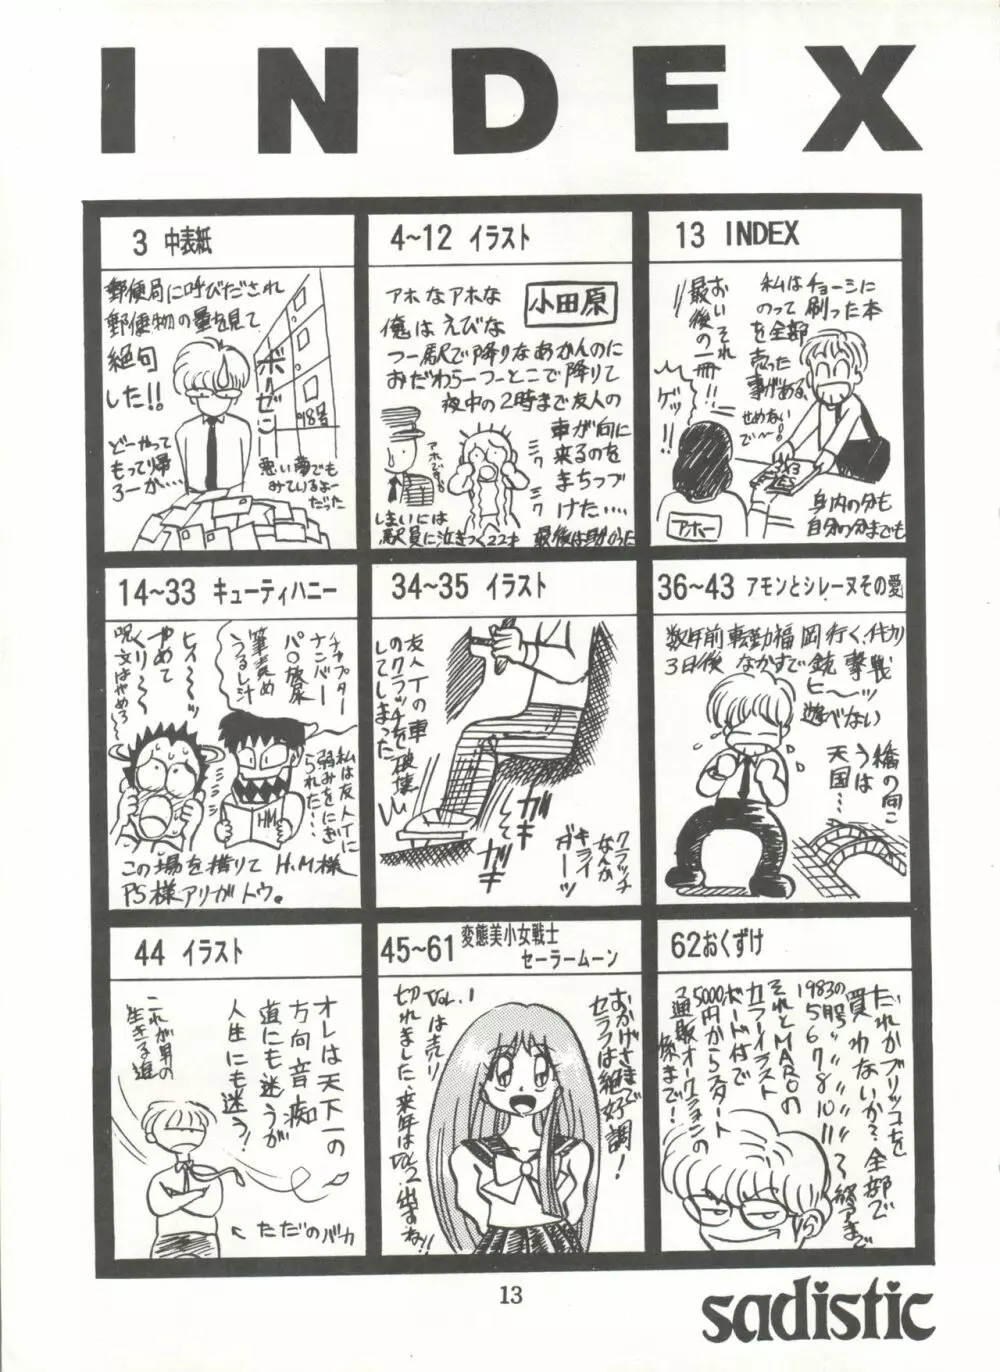 INDEX
3 中表紙
郵便局に呼びだされ
郵便物の量を見て
絶句
した!!
ボーゼン
98号
どーやって
もって帰
ろーか‥‥
悪い夢でも
みているよー
だった
4~12 イラスト
アホなアホな
俺はえびな
つー駅で降りなあかんのに
おだわらーつーとこで降りて
夜中の2時まで友人の
車が向に
来るのを
まちつづ
けた‥‥
小田原
アホでっ
ミワ
ミワ
しまいには
駅員に泣きつく22才
最後は助かった
13 INDEX
私はチョーシに
のって刷った本
を全部
売った
事がある、
せめないで~!
おいそれ
最後の一冊!!
ゲッ!!
アホー
身内の分も
自分の分までも
14~33 キューティハニー
チャプター
ナンバー
パ○放尿
筆責め
うるし汁
ヒィ~~ッ
やめて
くり~~
呪文はやめろ
私は友人Tに
弱みをにぎ
られた‥‥
HM
この場を借りて H.M様
PS様アリガトウ。
34~35 イラスト
友人Tの車
のクラッチを破壊
してしまった
ガキ
して
ガキ
クラッチ
なんか
キライ
ガーッ
36~43 アモンとシレーヌその愛
数年前転勤福岡行く、
3日後なかすで銃撃戦
ヒ~ッ
遊べない
橋の向こ
うは
天国‥‥
44 イラスト
オレは天下一の
方向音痴
道にも迷うが
人生にも迷う!
これが男の
生きる道
←ただのバカ
45~61 変態美小女戦士
セーラームーン
おかげさまで
セラフは絶好調!
Vol.1は売り
切れました、来年はVol.2出すね!!
62おくずけ
だれかブリッコを
買わないか?全部で
1983の5月号〃6〃7〃8〃10〃11
それとMAROの
カラーイラスト
ボード付で
5000円からスタート
通販オークションの
係まで!
13
sadistic